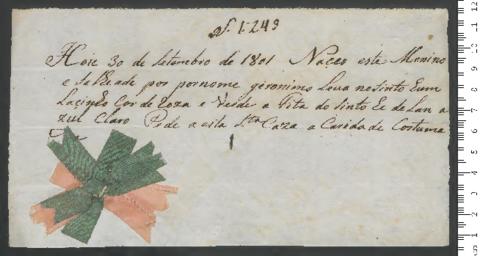 N. 1243
Hoie 30 de Setembro de 1801 Naçeo este Menino
e se lhe ade por por nome geronimo Leua no Sinto Eum
Lacinho Cor de Roza e Verde a Fita do Sinto he de Lan a
zul Claro Pede a esta Sta Caza a Carida de Costuma
da